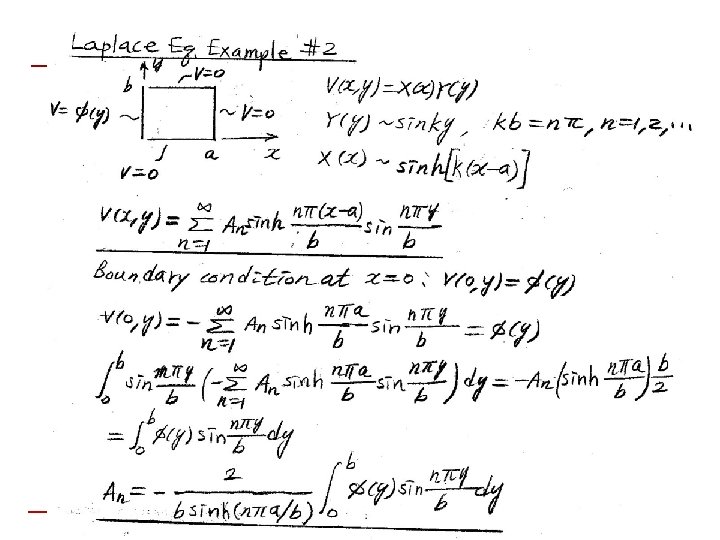 Laplace Eq. Example #2
y
b ~V=0
V= φ(y) ~ ~ V=0
a x
V=0
V(x,y)=X(x)Y(y)
Y(y) ~ sinky, kb = nπ, n=1,2,...
X(x) ~ sinh[k(x-a)]
V(x,y) = ∑_{n=1}^{∞} An sinh nπ(x-a)/b sin nπy/b
Boundary condition at x=0: V(0,y)= φ(y)
V(0,y) = - ∑_{n=1}^{∞} An sinh nπa/b sin nπy/b = φ(y)
∫_0^b sin mπy/b (- ∑_{n=1}^{∞} An sinh nπa/b sin nπy/b) dy = -An (sinh nπa/b) b/2
= ∫_0^b φ(y) sin nπy/b dy
An = - 2/(b sinh(nπa/b)) ∫_0^b φ(y) sin nπy/b dy